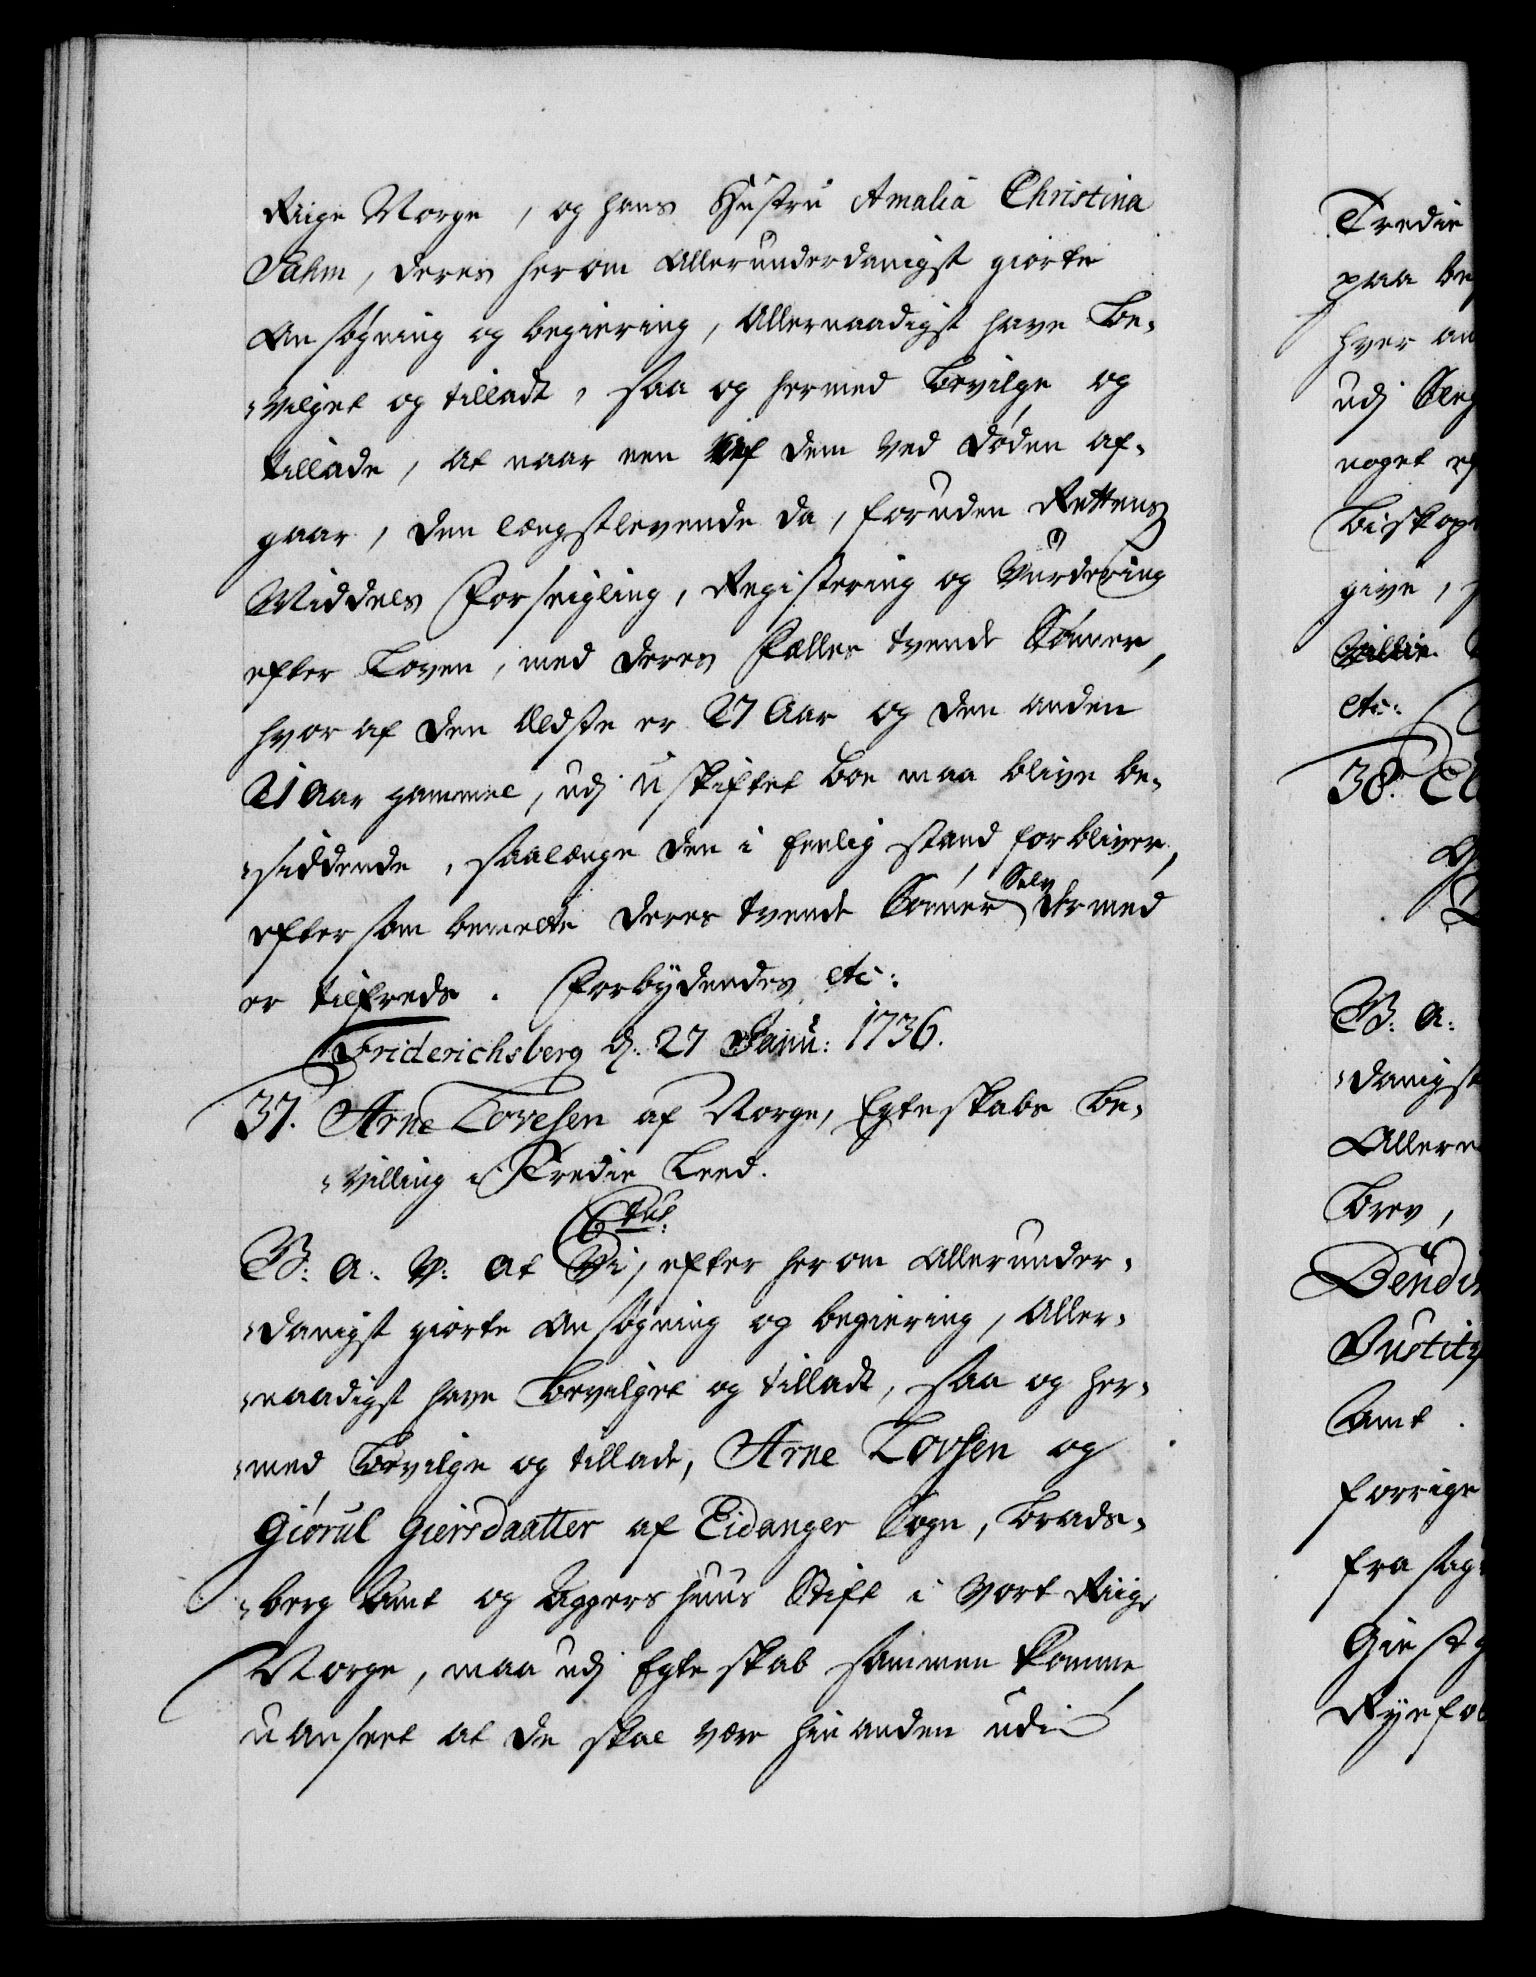 Riige Norge, og hans Hustru Amalia Christina
Sahm, deres herom Allerunderdanigst giorte
Ansøgning og begiering, Allernaadigst have Be-
-vilget og tilladt, saa og hermed Bevilge og
tillade, at naar een af dem ved Døden af-
gaar, den længstlevende da, foruden Rettens
Middels Forseigling, Registering og Vurdering
efter Loven, med deres Fælles tvende Sønner,
hvoraf den Ældste er 27 Aar og den anden
21 Aar gammel, udj uskiftet boe maa blive be-
-siddende, saalænge den i Eenlig stand forbliver,
eftersom bemelte deres tvende Sønner Selv dermed
er tilfreds. Forbydendes etc:
Friderichsberg d: 27 Janu: 1736.
37. Arne Tovesen af Norge, Egteskabs Be-
-villing i Tredie Leed.
C6tus.
G: a: V: at Vi, efter herom Allerunder-
-danigst giorte Ansøgning og begiering, Aller-
-naadigst have Bevilget og tilladt, saa og her-
-med Bevilge og tillade, Arne Tovsen og
Giørul Giersdaatter af Eidanger Sogn, Brads-
-berg Amt og Aggershuus Stift i Vort Riige
Norge, maa udj Egteskab sammen komme,
uanseet at de skal være hinanden udi
Tredie
paa
hver
udj
noget
Biskop
give,
etc:
38.
G: a:
-danigst
Brev,
Amt.
forrige